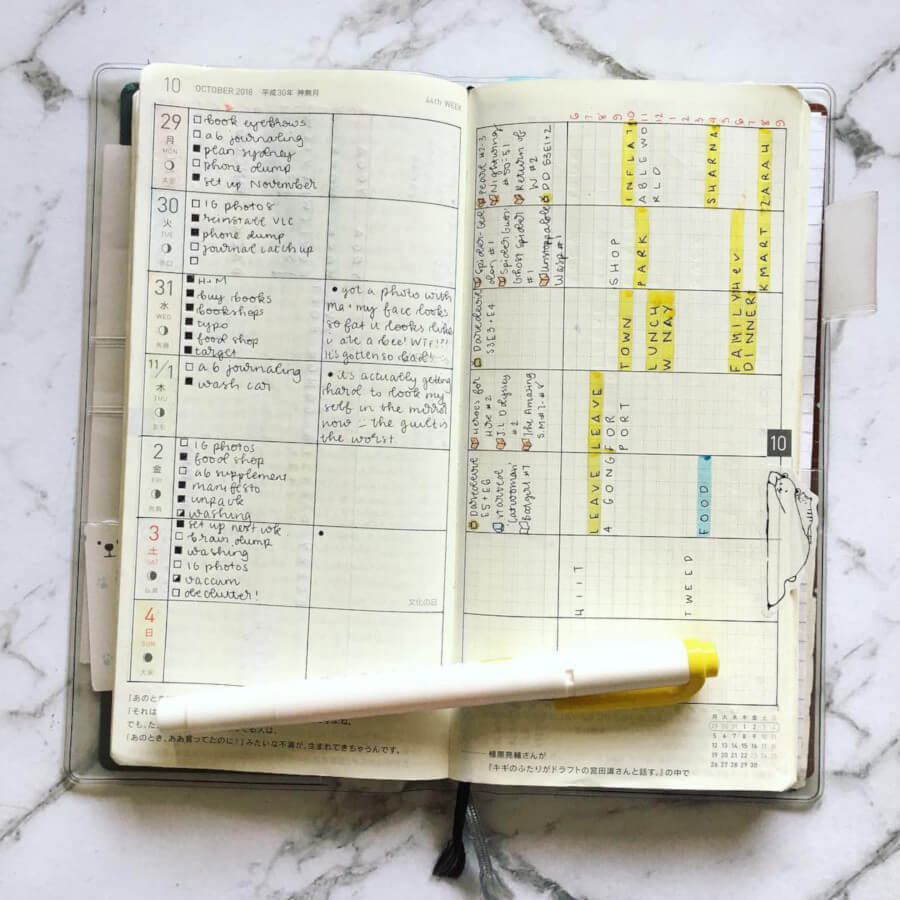 10 OCTOBER 2018 平成30年 神無月
44th WEEK
29
月
MON
book eyebrows
a6 journaling
plan sydney
phone dump
set up November
30
火
TUE
IG photos
reinstall VLC
phone dump
journal catch up
31
水
WED
H+M
buy books
bookshops
typo
food shop
target
• got a photo with
ma + my face looks
so fat it looks like
i ate a bee! WTF!?!
It's gotten so bad!
11/1
木
THU
a6 journaling
wash car
• it's actually getting
hard to look my
self in the mirror
now – the guilt is
the worst
2
金
FRI
IG photos
food shop
a6 supplement
manifesto
unpack
washing
3
土
SAT
set up next wk
brain dump
washing
IG photos
vaccum
declutter!
•
文化の日
4
日
SUN
「あのとき
「それは
でも、た
「あのとき、ああ言ってたのに!」みたいな不満が、生まれてきちゃうんです。
6 7 8 9 10 11 12 1 2 3 4 5 6 7 8 9
Nightwing
#50-51
Return of
W #2
DD S3E1+2
INFLAT
ABLEWO
RLD
SHARNA
ZARAH
Spider-Ged
don #1
Ghost Spider
#1
Unstoppable
Wasp #1
SHOP
PARK
Hev
KMART
Daredevil
S3E3+E4
TOWN
LUNCH
W NAY
FAMILY
DINNER
Heroes for
Hire #2
J.L Odyssey
#2
The Amazing
LEAVE
LEAVE
FOR
PORT
Daredevil
E5+E6
'Catwoman'
Batgirl #7
LEAVE
4 GONG
FOOD
HIIT
TWEED
10
植原亮輔さんが
『キギのふたりがドラフトの宮田識さんと話す。』の中で
月 火 水 木 金 土 日
29 30 31 1 2 3 4
5 6 7 8 9 10 11
12 13 14 15 16 17 18
19 20 21 22 23 24 25
26 27 28 29 30